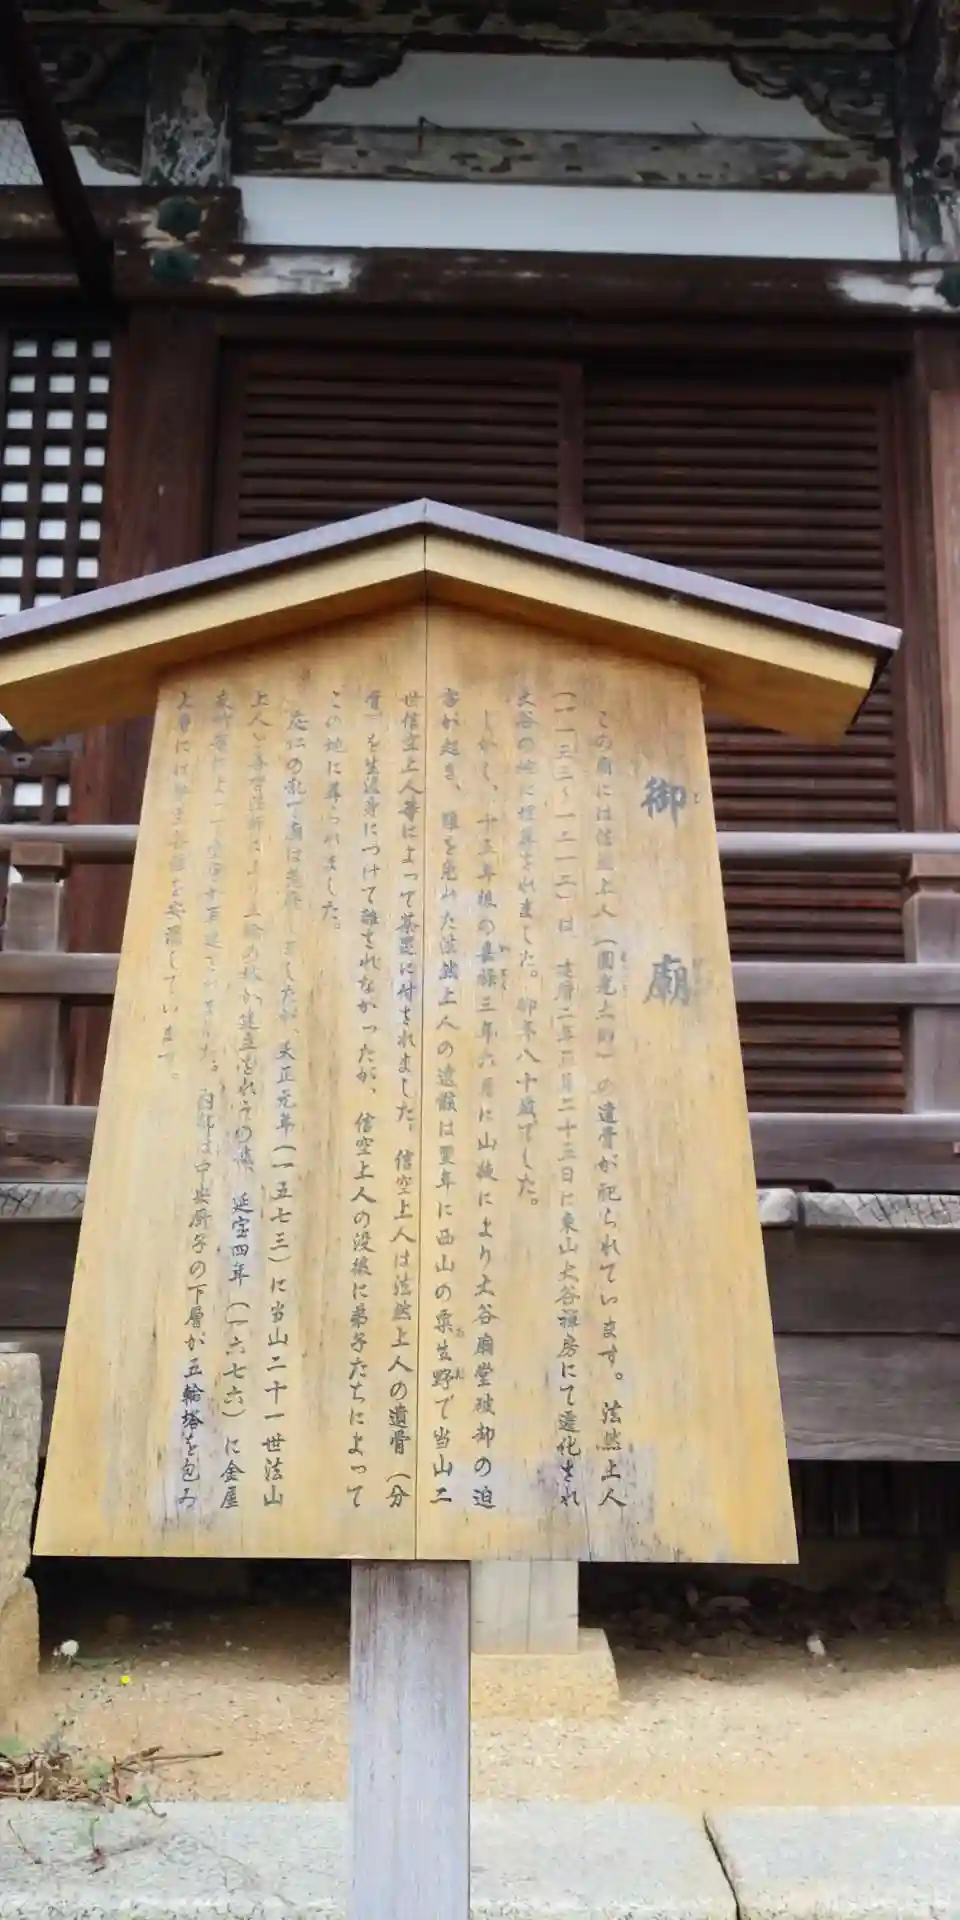 御廟
この廟には法然上人（圓光大師）の遺骨が祀られています。法然上人
（一一三三～一二一二）は、建暦二年正月二十三日に東山大谷禅房にて遷化され
大谷の地に埋葬されました。御年八十歳でした。
しかし、十五年後の嘉禄三年六月に山徒により大谷廟堂破却の迫
害が起き、難を免れた法然上人の遺骸は翌年に西山の粟生野で当山二
世信空上人等によって荼毘に付されました。信空上人は法然上人の遺骨（分
骨）を生涯身につけて離されなかったが、信空上人の没後に弟子たちによって
この地に葬られました。
応仁の乱で廟は荒廃しましたが、天正元年（一五七三）に当山二十一世法山
上人と法師により建立されその後、延宝四年（一六七六）に金屋
によって再建されました。内部は中央厨子の下層が五輪塔を包み
上層にはを安置しています。